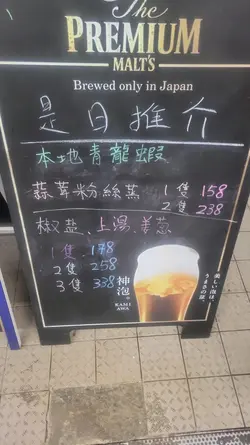 The
PREMIUM
MALT'S
Brewed only in Japan
是日推介
本地青龍蝦
蒜茸粉絲蒸 1隻 158
2隻 238
椒盐、上湯、姜葱
1隻 178
2隻 258
3隻 338
神泡®
KAMI
AWA
美しい泡は、
うまさの証。